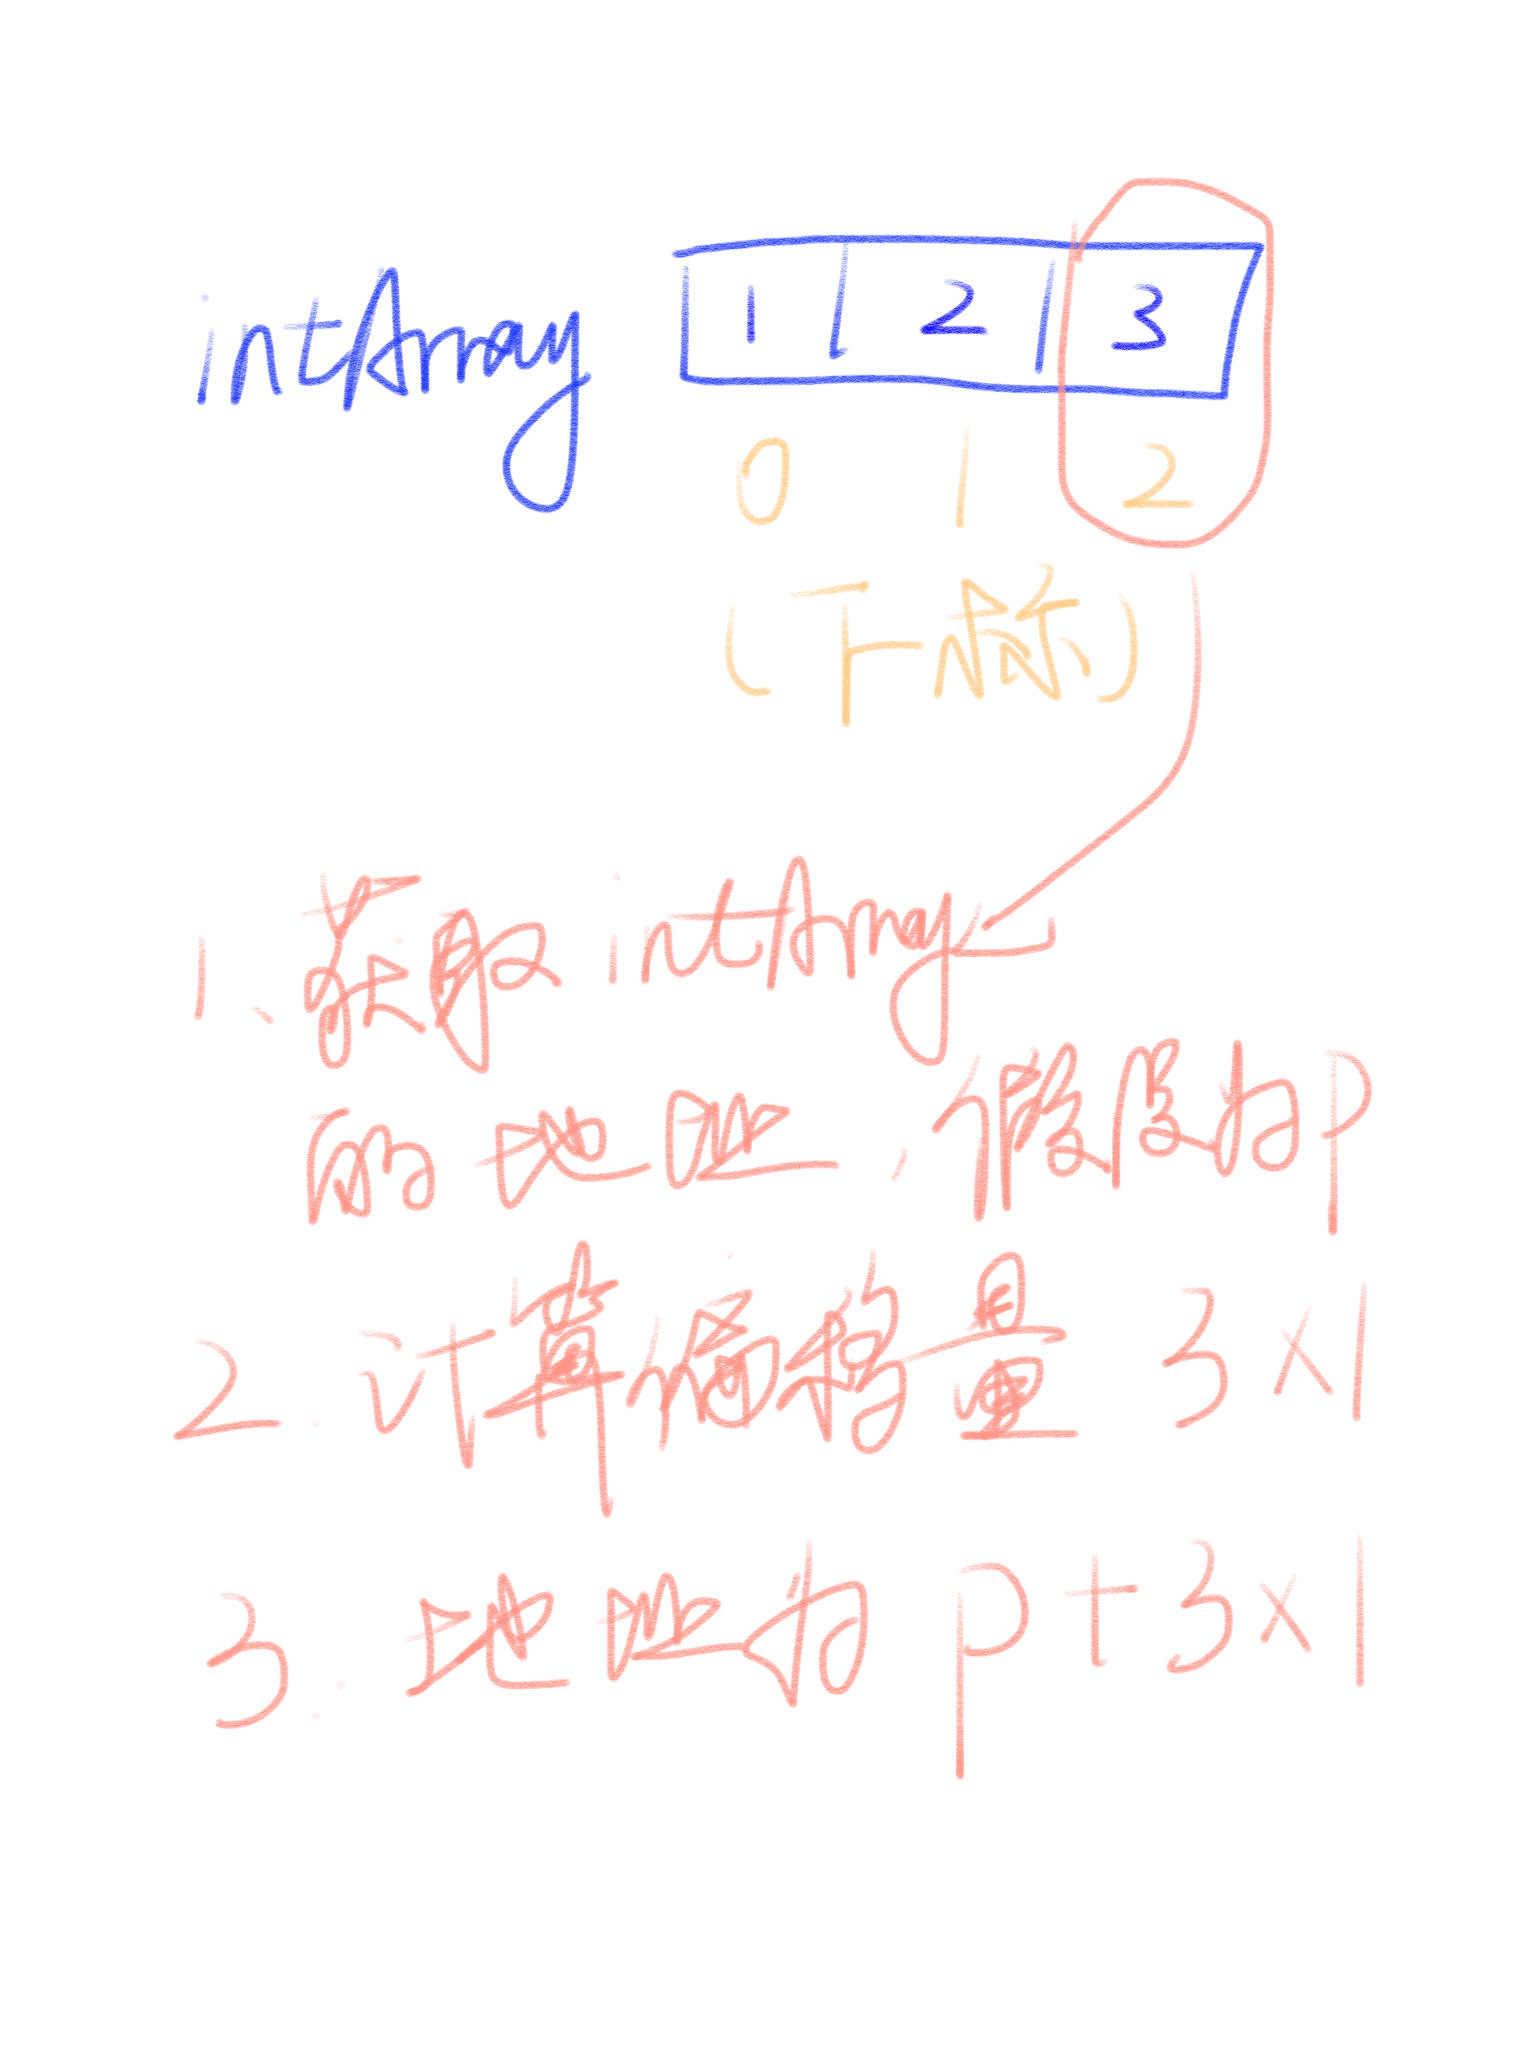 intArray 1 2 3
0 1 2
(下标)
1、获取intArray
的地址,假设为p
2.计算偏移量 3×1
3.地址为p+3×1